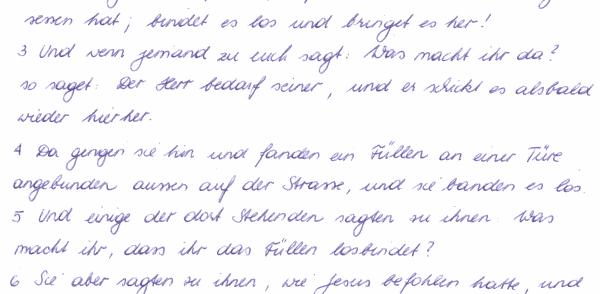 sessen hat; bindet es los und bringet es her!
3 Und wenn jemand zu euch sagt: Was macht ihr da?
so saget: Der Herr bedarf seiner, und er schickt es alsbald
wieder hierher.
4 Da gingen sie hin und fanden ein Füllen an einer Türe
angebunden aussen auf der Strasse, und sie banden es los.
5 Und einige der dort Stehenden sagten zu ihnen: Was
macht ihr, dass ihr das Füllen losbindet?
6 Sie aber sagten zu ihnen, wie Jesus befohlen hatte, und